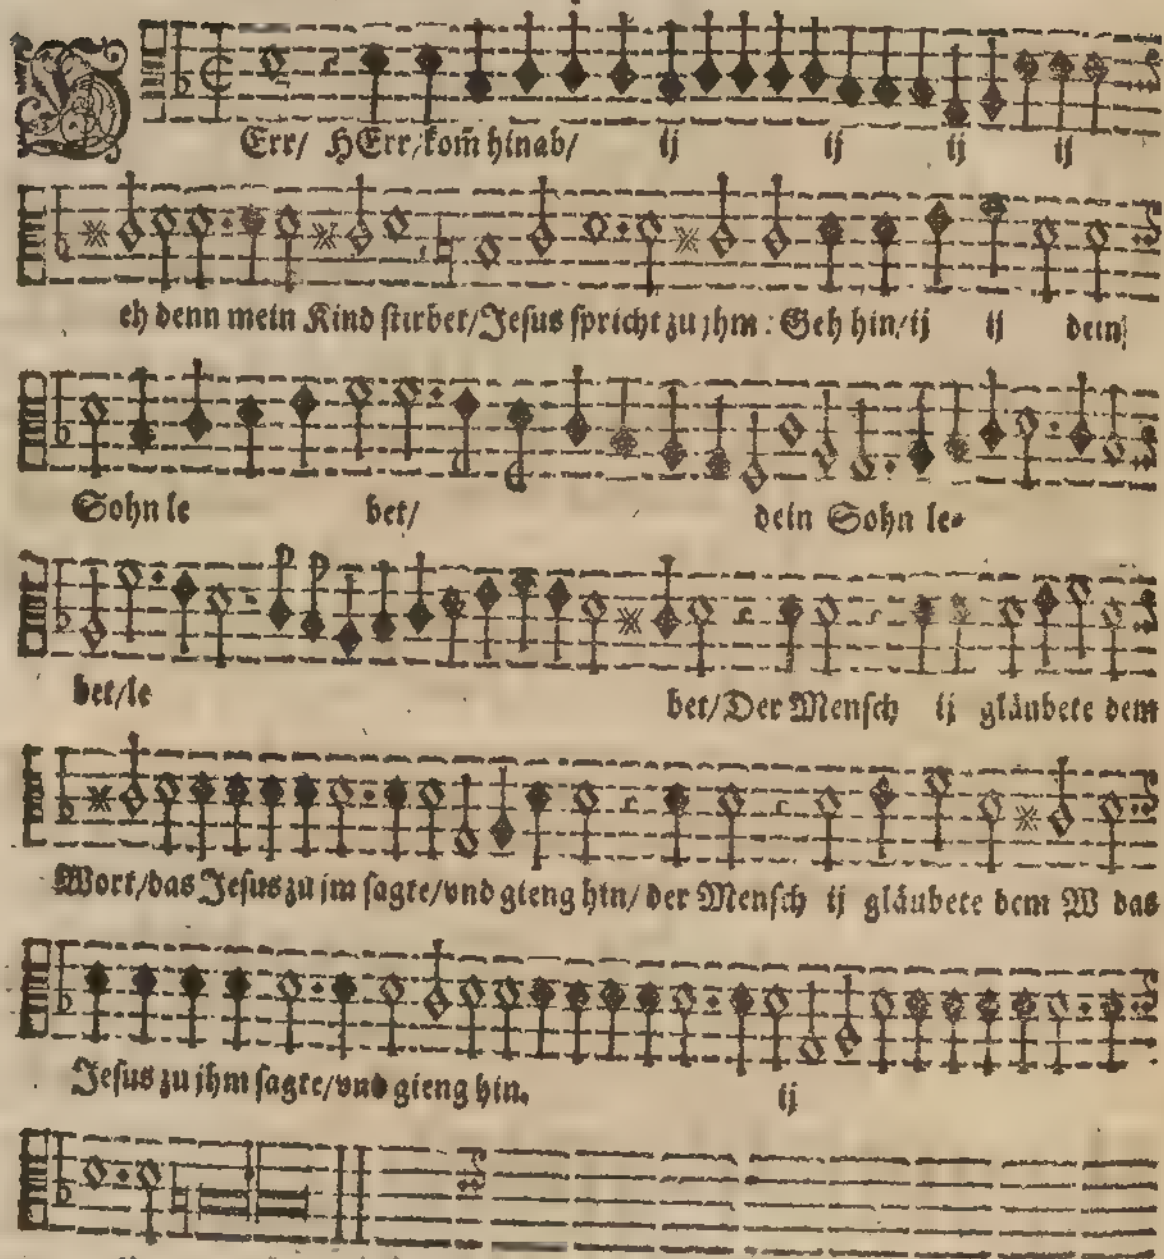 HErr/ HErr/kom̃ hinab/ ij ij ij ij
eh denn mein Kind stirbet/Jesus spricht zu jhm: Geh hin/ij ij dein
Sohn le bet/ dein Sohn le-
bet/le bet/Der Mensch ij gläubete dem
Wort/das Jesus zu jm sagte/vnd gieng hin/ der Mensch ij gläubete dem W das
Jesus zu jhm sagte/vnd gieng hin. ij